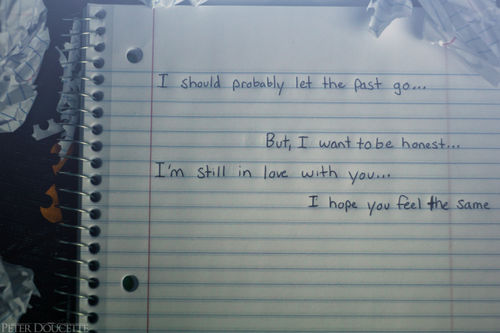 I should probably let the past go...
But, I want to be honest...
I'm still in love with you...
I hope you feel the same
PETER DOUCETTE